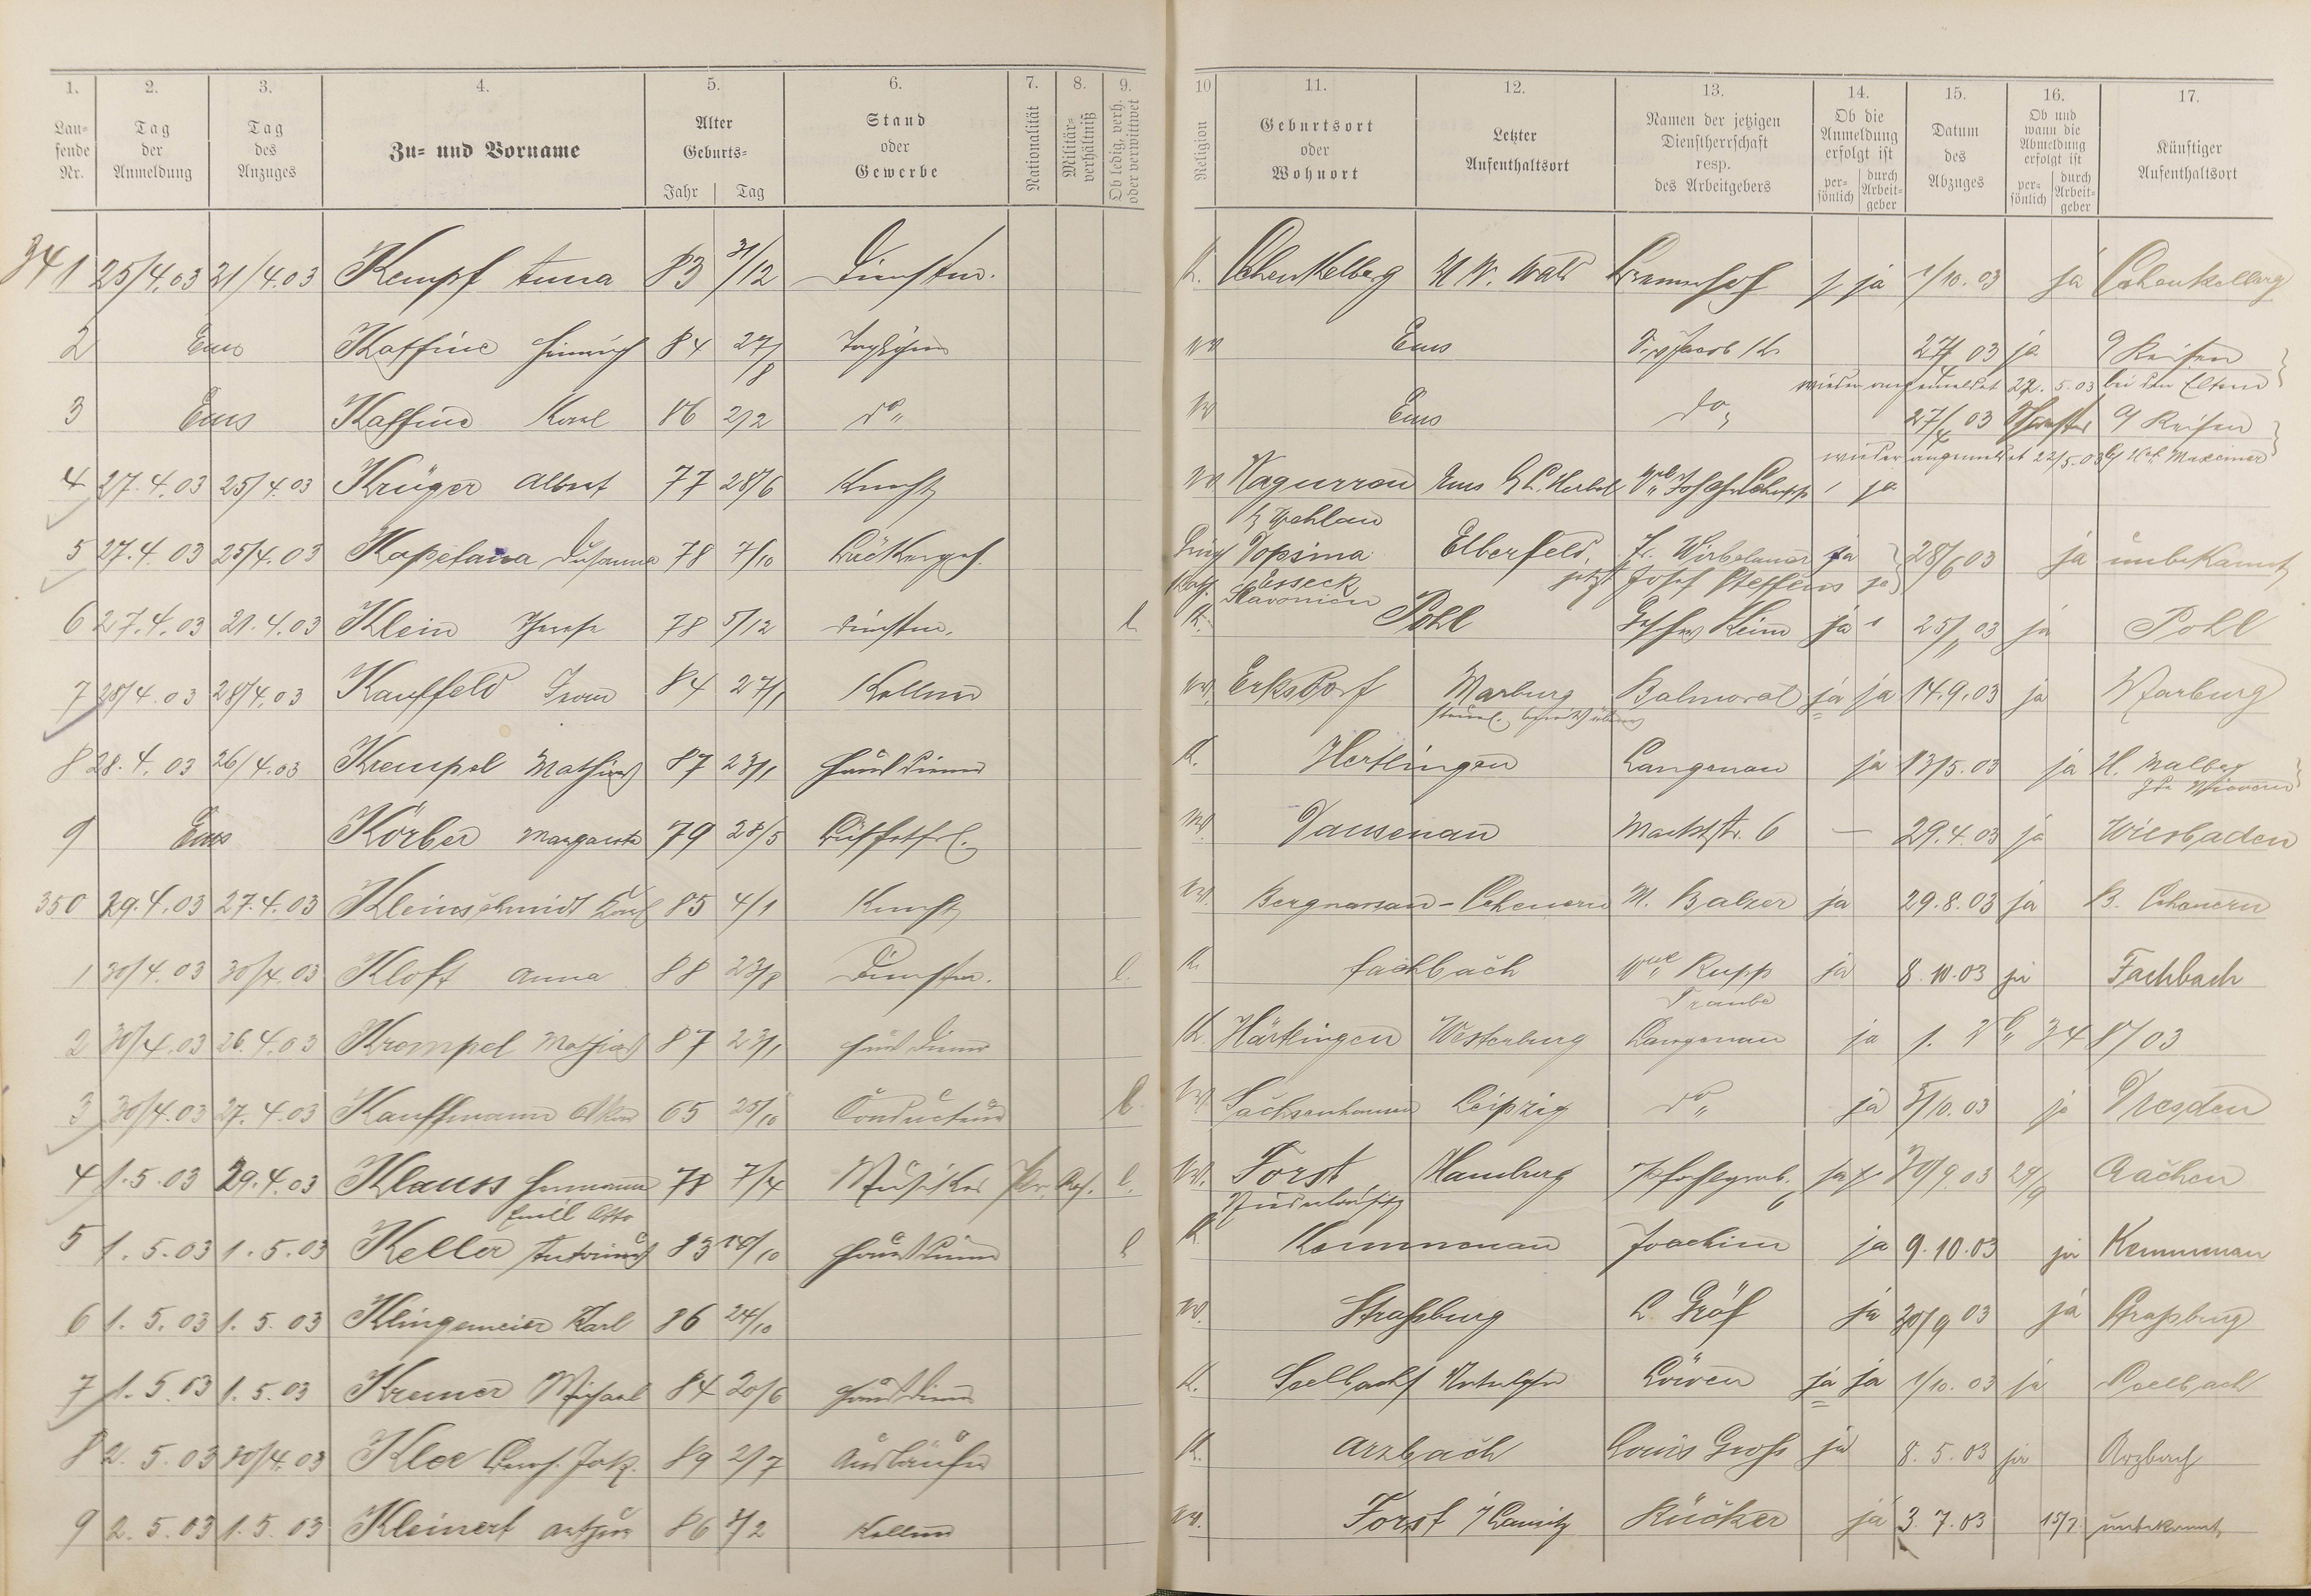 1. 2. 3. 4. 5. 6. 7. 8. 9. 10 11. 12. 13. 14. 15. 16. 17.
Lau-fende Nr. Tag der Anmeldung Tag des Anzuges Zu- und Vorname Alter Geburts- Jahr Tag Stand oder Gewerbe Nationalität Militär-verhältniß Ob ledig, verh. oder verwittwet Religion Geburtsort oder Wohnort Letzter Aufenthaltsort Namen der jetzigen Dienstherrschaft resp. des Arbeitgebers Ob die Anmeldung erfolgt ist per-sönlich durch Arbeit-geber Datum des Abzuges Ob und wann die Abmeldung erfolgt ist per-sönlich durch Arbeit-geber Künftiger Aufenthaltsort
341 25/4.03 21/4.03 Kempf Anna 83 31/12 Dienstm. K. Schenkelberg ja 1/10.03 ja Schenkelberg
2 Ems Kaffine Heinrich 84 27/8 Taglöhner W Ems 27/4 03 ja a/ Reisen
wieder angemeldet 22. 5.03 bei den Eltern
3 Ems Kaffine Karl 86 2/2 do " W Ems do " 27/4 03 a/ Reisen
wieder angemeldet 22/5.03
4 27.4.03 25/4.03 Krüger Albert 77 28/6 Knecht W Ems ja
5 27.4.03 25/4.03 78 7/10 Bäckerges. Elberfeld, ja 28/6 03 ja unbekannt
Esseck jetzt Josef Steffens ja
Slavonien
6 27.4.03 21.4.03 Klein 78 5/12 Dienstm. l. K. Pohl ja 25/11 03 ja Pohl
7 28/4.03 28/4.03 Kauffeld 84 27/1 Kellner W. Erksdorf Marburg Balmoral ja ja 14.9.03 ja Marburg
8 28.4.03 26/4.03 Krempel Mathias 87 23/1 Hausdiener K. Hertlingen Langenau ja 13/5.03 ja
9 Ems Körber Margareta 79 28/5 W. Dausenau Marktstr. 6 — 29.4.03 ja Wiesbaden
350 29.4.03 27.4.03 Kleinschmidt Karl 85 4/1 Knecht W. Bergnassau-Scheuern M. Balzer ja 29.8.03 ja B. Scheuern
1 30/4.03 30/4.03 Kloft Anna 88 23/8 Dienstm. l. K. Fachbach Wwe Rupp ja 8.10.03 ja Fachbach
Traube
2 30/4.03 26.4.03 Krempel Mathias 87 23/1 Hausdiener K. Härtlingen Westerburg Langenau ja
3 30/4.03 27.4.03 Kauffmann 65 25/10 Conducteur W Sachsenhausen Leipzig do " ja 5/10.03 ja Dresden
4 1.5.03 29.4.03 Klauss Hermann 78 7/4 Musiker Pr. l. W. Forst Hamburg Pfahlgrab. 6 ja 20/9.03 24/9 Aachen
Emil Otto Niederlausitz
5 1.5.03 1.5.03 Keller Antonius 83 Hausdiener l K Kemmenau Joachim ja 9.10.03 ja Kemmenau
6 1.5.03 1.5.03 Klingemeier Karl 86 24/10 W. Straßburg L. Gröf ja 20/9 03 ja Straßburg
7 1.5.03 1.5.03 Kremer Michael 84 20/6 Hausdiener K. Seelbach Löwen ja ja 1/10.03 ja Seelbach
8 2.5.03 30/4.03 Klee Jak. 89 2/7 Ausläufer K. Arzbach Louis Groß ja 8.5.03 ja Arzbach
9 2.5.03 1.5.03 Kleinert Arthur 86 Kellner W. Forst i/Lausitz Rücker ja 3.7.03 15/7. unbekannt